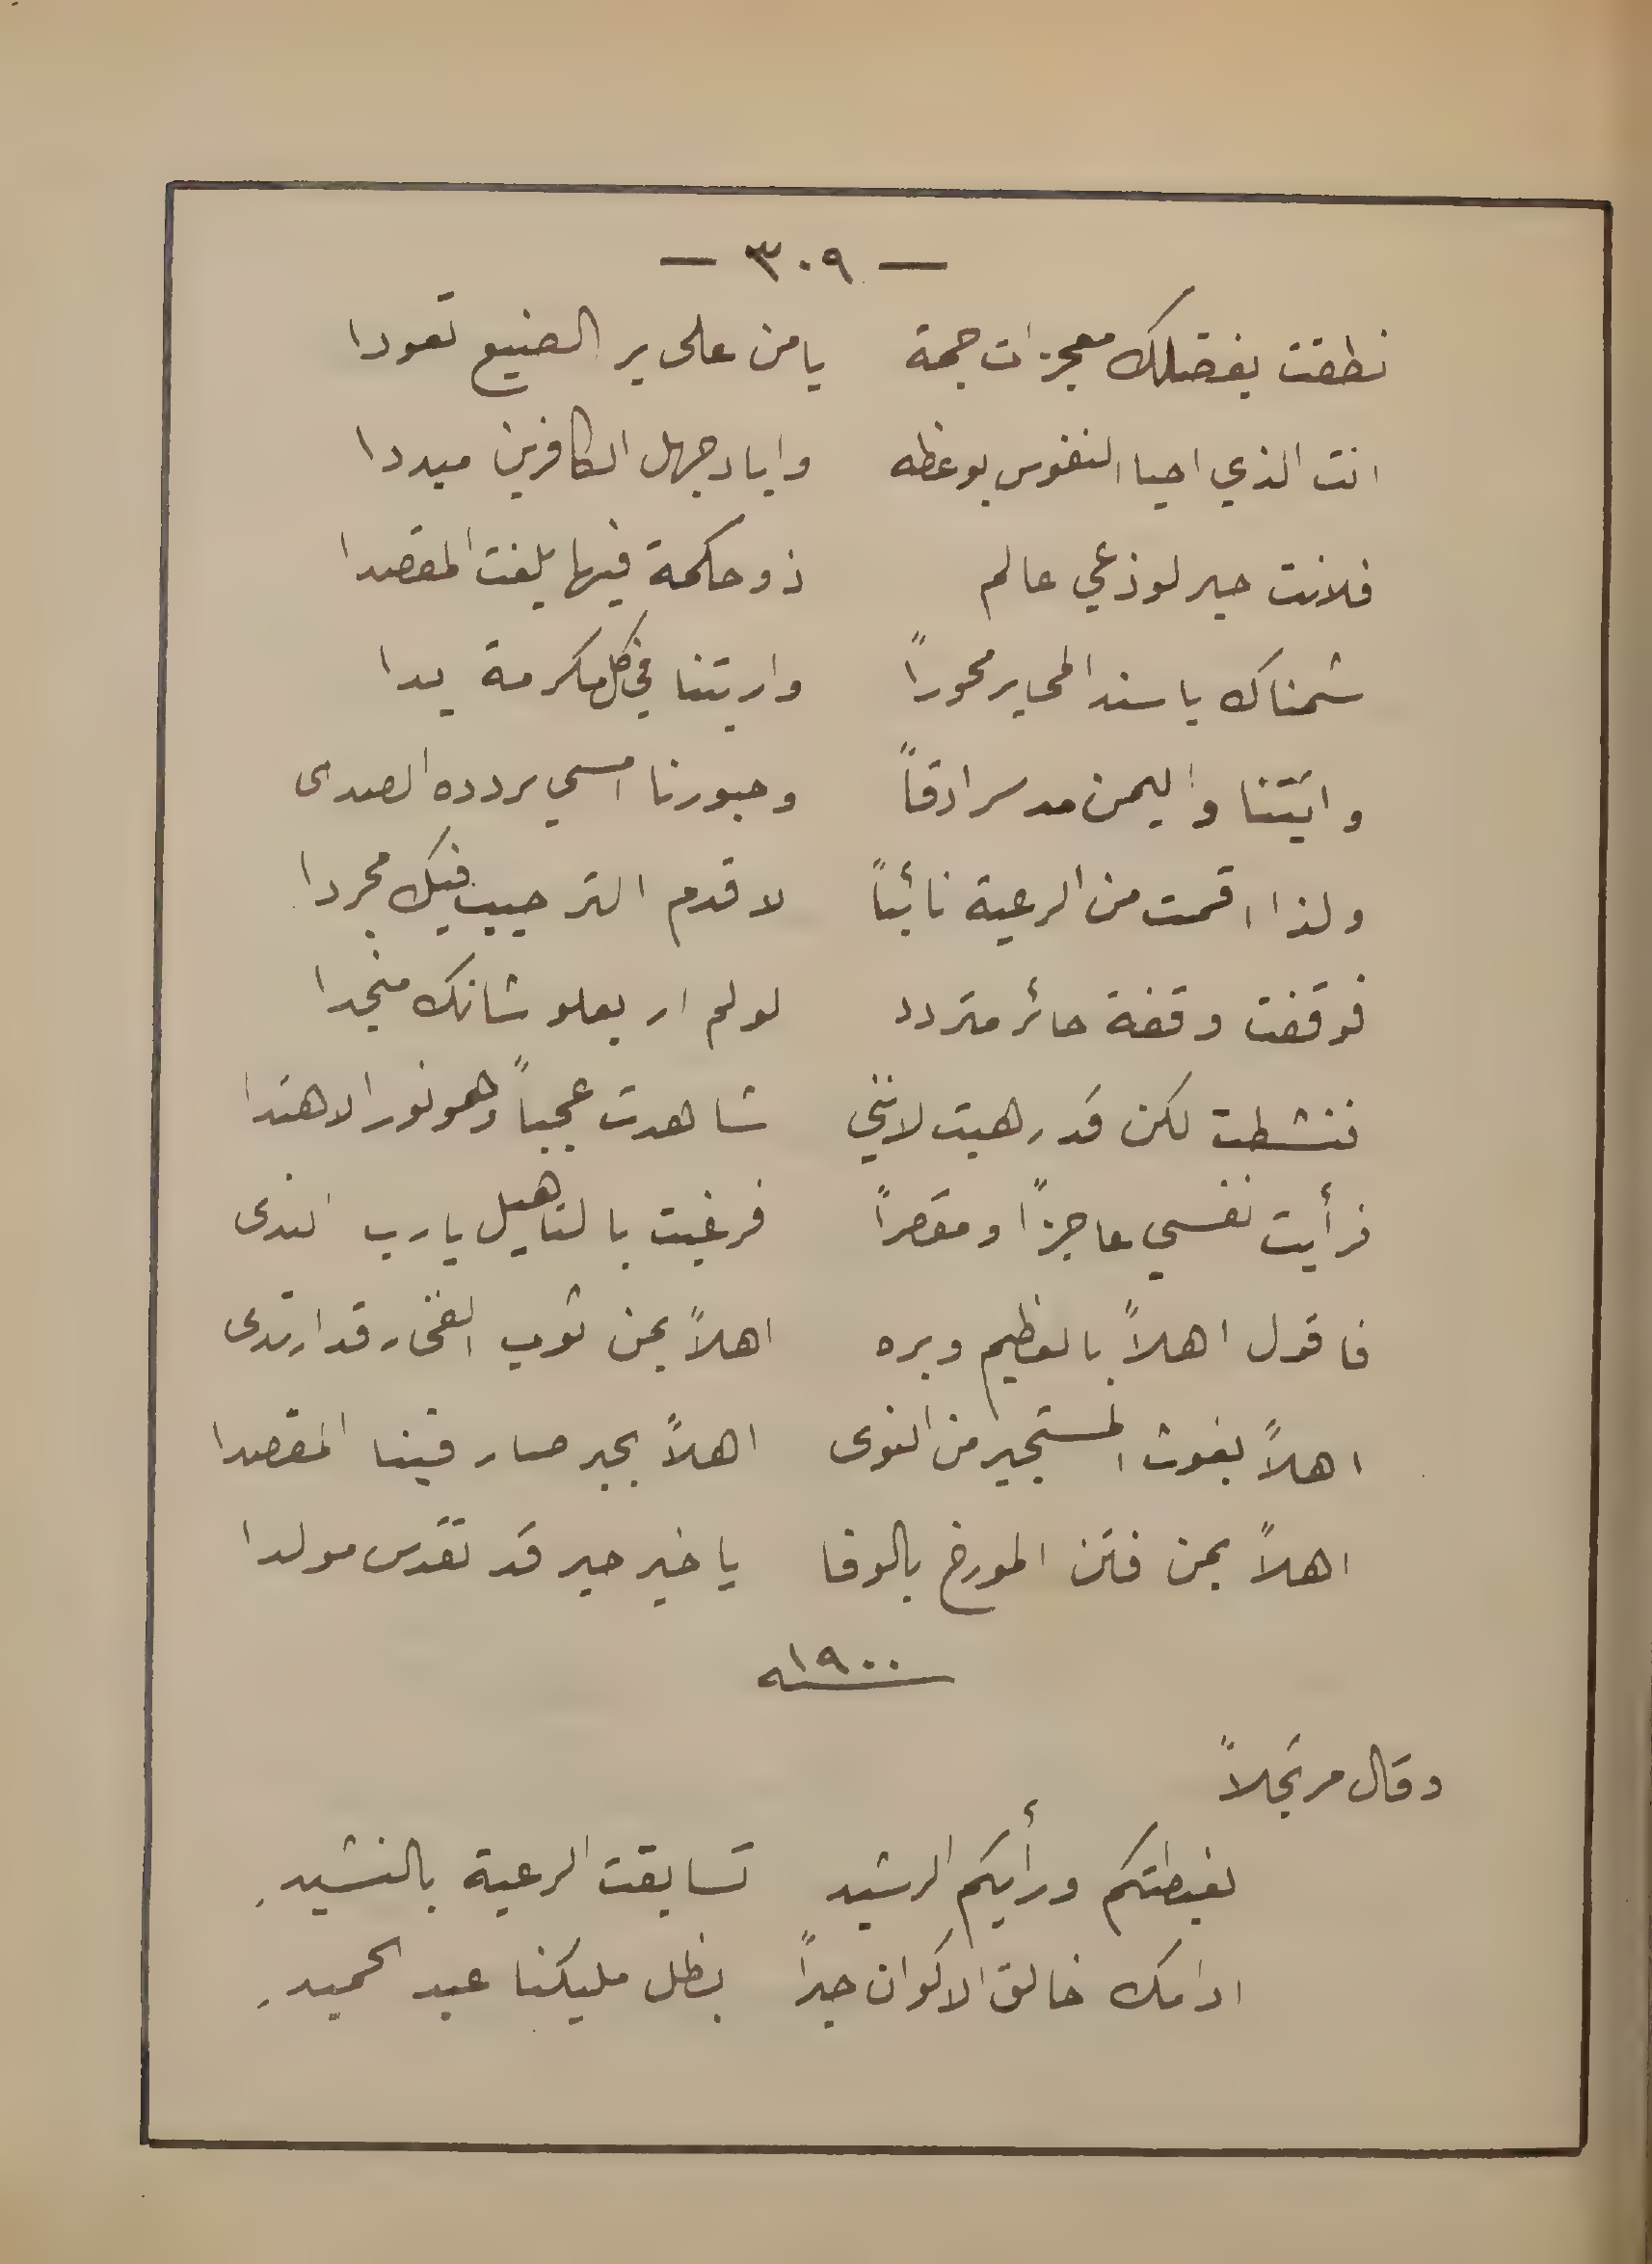 — ٣٠٩ —
نطقت بفضلك معجزات جمة يا من على بر الصنيع تعودا
انت الذي احيا النفوس بوعظه واباد جهل الكافرين مبددا
فلانت حبر لوذعي عالم ذو حكمة فيها بلغت المقصدا
شمناك يا سند المحابر محوراً واريتنا في كل مكرمة يدا
واتيتنا واليمن مد سرادقاً وحبورنا امسى يردده الصدى
ولذا اقمت من الرعية نائباً لاقدم الترحيب فيك مجردا
فوقفت وقفة حائر متردد لو لم ار بعلو شانك منجدا
فنشطت لكن قد رهبت لانني شاهدت عجباً وهو نور الاهتدا
فرأيت نفسي عاجزاً ومقصراً فرغبت بالتاهيل يا رب الندى
فاقول اهلاً بالعظيم وبره اهلاً بمن ثوب الفخار قد ارتدى
اهلاً بغوث المستجير من النوى اهلاً بحبر صار فينا المقصدا
اهلاً بمن فتن المورخ بالوفا يا خير حبر قد تقدس مولدا
سنه ١٩٠٠
وقال مرتجلاً
بغبطتكم ورأيكم الرشيد تسابقت الرعية بالنشيدِ
ادامك خالق الاكوان حبراً بظل مليكنا عبد الحميدِ